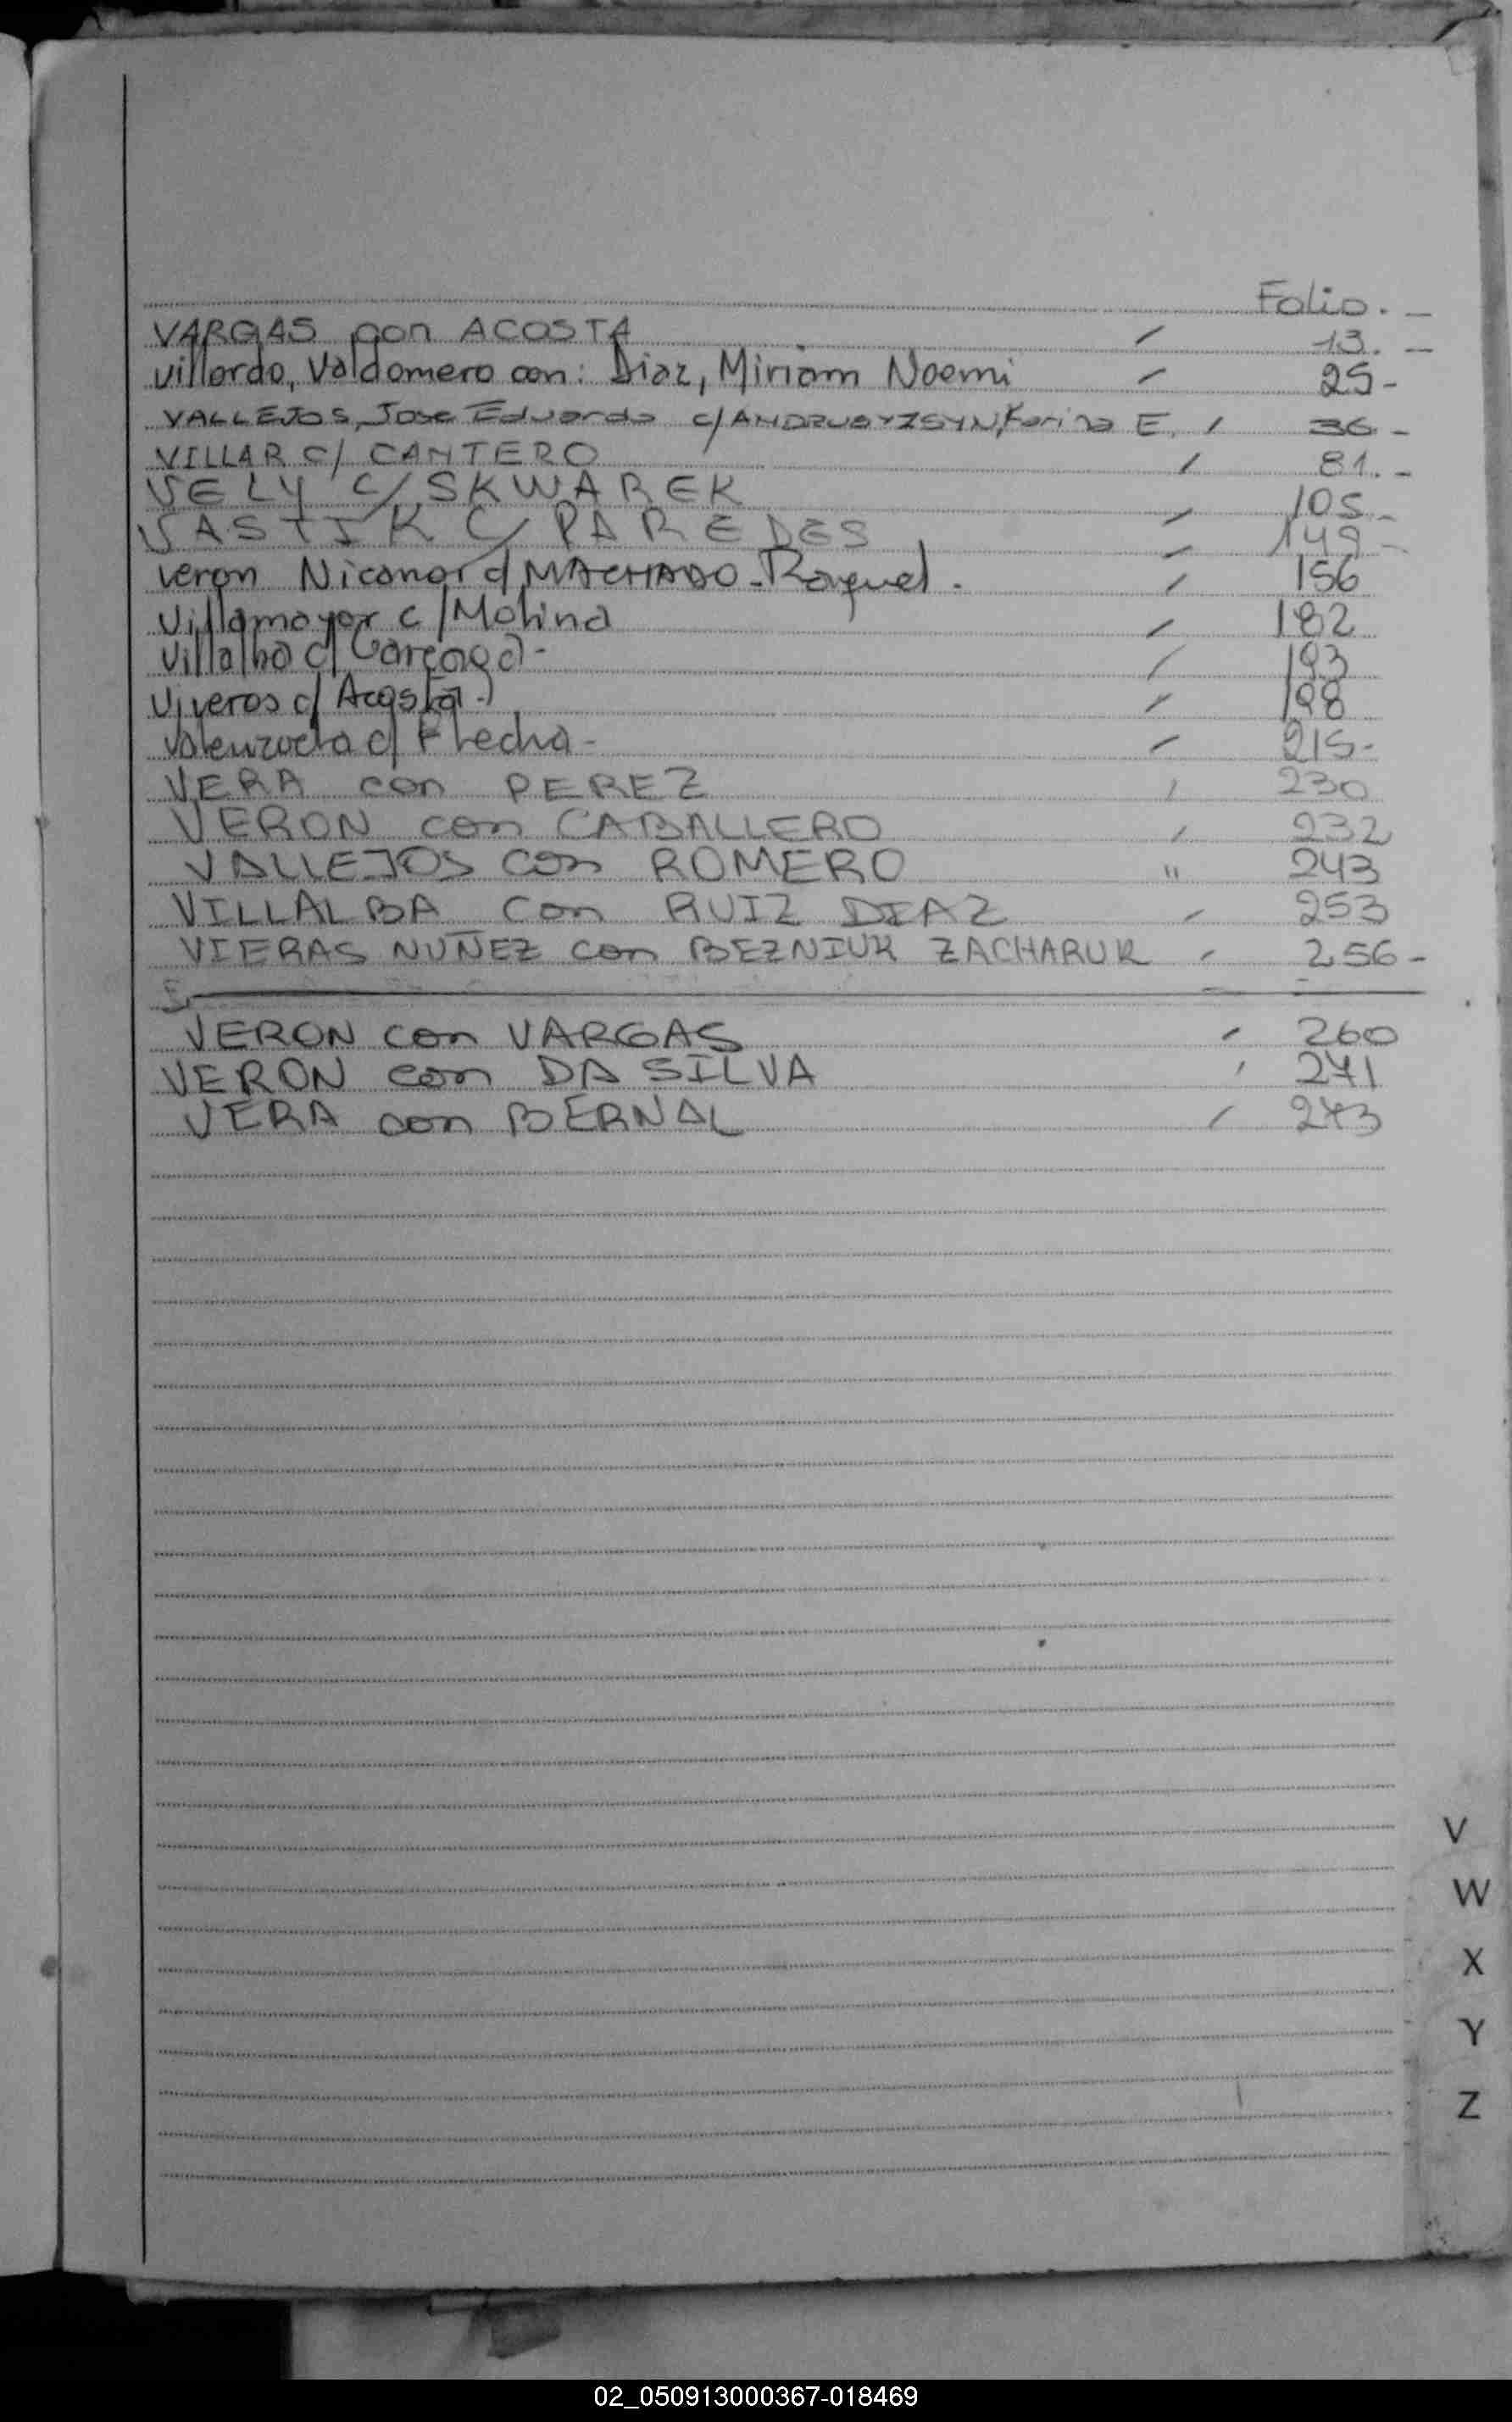 Folio. -
VARGAS con ACOSTA ′ 13. -
Villordo, Valdomero con: Diaz, Miriam Noemi ′ 25-
VALLEJOS, Jose Eduardo c/ Karina E. ′ 36 -
VILLAR c/ CANTERO ′ 81. -
VELY c/ SKWAREK ′ 105 -
VASTIK C/ PAREDES ′ 149 -
Veron Nicanor c/ MACHADO - Raquel. - ′ 156
Villamayor c/ Molina ′ 182
Villalba c/ - ′ 193
Viveros c/ Acosta. ′ 198
Valenzuela c/ Flecha - ′ 215-
VERA con PEREZ ′ 230
VERON con CABALLERO ′ 232
VALLEJOS con ROMERO " 243
VILLALBA con RUIZ DIAZ ′ 253
VIERAS NUÑEZ con BEZNIUK ZACHARUK ′ 256 -
VERON con VARGAS ′ 260
VERON con DA SILVA ′ 271
VERA con BERNAL ′ 273
V
W
X
Y
Z
02_050913000367-018469